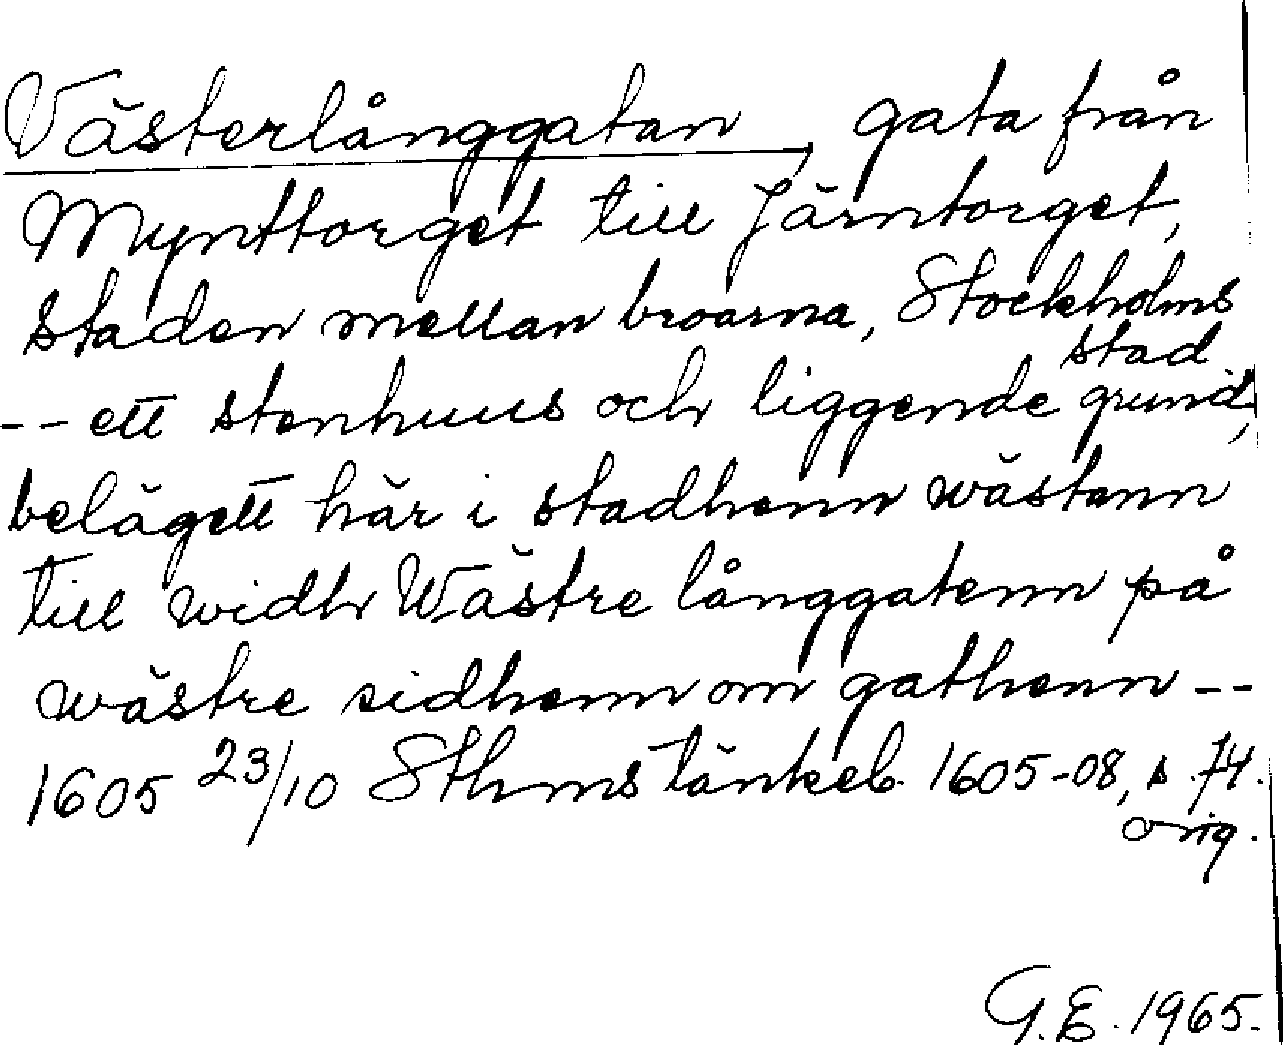 Västerlånggatan, gata från
Mynttorget till Järntorget,
staden mellan broarna, Stockholms
stad
-- ett stenhuus och liggende grund,
belägett här i stadhenn wästann
till widh Wästre långgatenn på
wästre sidhenn om gathenn --
1605 23/10 Sthms tänkeb. 1605-08, s. 74.
orig.
G.E. 1965.